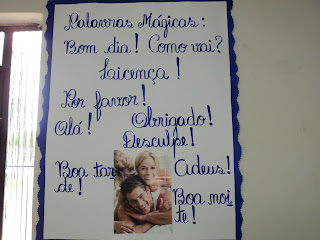 Palavras Mágicas:
Bom dia! Como vai?
Licença!
Por favor!
Olá! Obrigado!
Desculpe!
Boa tar
de!
Adeus!
Boa noi
te!